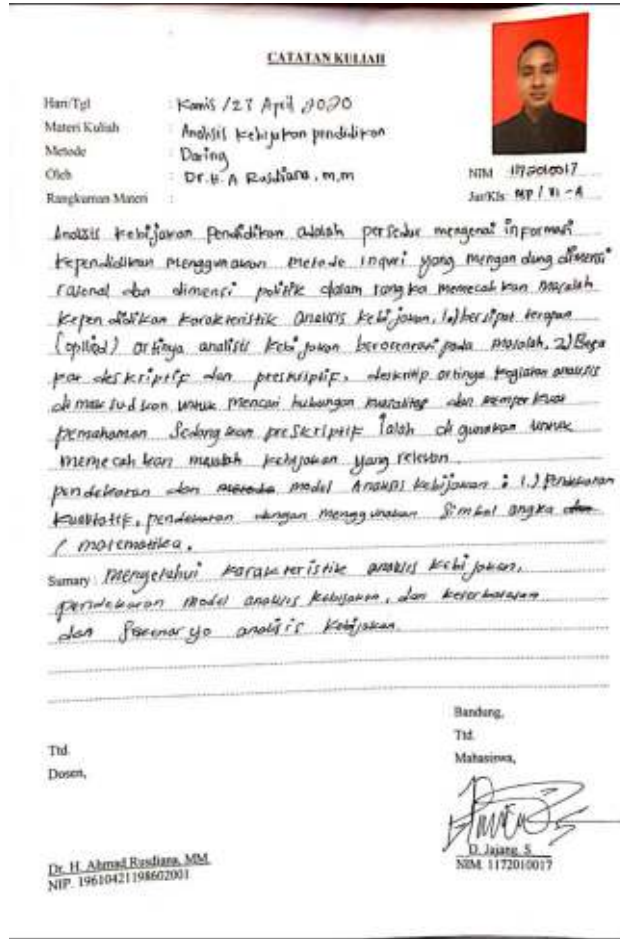 CATATAN KULIAH
Hari/Tgl : Kamis / 23 April 2020
Materi Kuliah : Analisis kebijakan pendidikan
Metode : Daring
Oleh : Dr. H. A Rusdiana, m,m
NIM 1172010017
Rangkuman Materi :
Jur/Kls MP / VI - A
Analisis kebijakan pendidikan adalah persedur mengenai informasi
kependidikan menggunakan metode inquri yang mengandung dimensi
rasional dan dimensi politik dalam rangka memecahkan masalah
kependidikan karakteristik analisis kebijakan, 1.) bersipat terapan
(opllied) artinya analisis kebijakan berorentasi pada masalah, 2.)
deskriptif dan preskriptif, deskritip artinya kegiatan analisis
di maksudkan untuk mencari hubungan kusalitas dan memperkuat
pemahaman Sedangkan preskriptif ialah di gunakan untuk
memecahkan masalah kebijakan yang relevan
pendekatan dan model Analisis kebijakan : 1.) Pendekatan
kuantatif, pendekatan dengan menggunakan Simbol angka
/ matematika.
Sumary : Mengetahui karakteristik analisis kebijakan,
pendekatan model analisis kebijakan, dan keterbatasan
dan Skenaryo analisis kebijakan.
Bandung,
Ttd. Ttd.
Dosen, Mahasiswa,
Dr. H. Ahmad Rusdiana, MM. D. Jajang. S
NIP. 19610421198602001 NIM. 1172010017